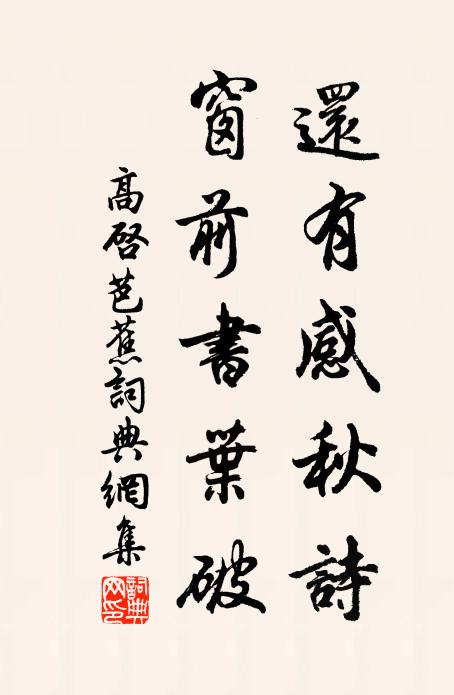 還有感秋詩
窗前書葉破
高啓芭蕉詞典網集
詞典网印